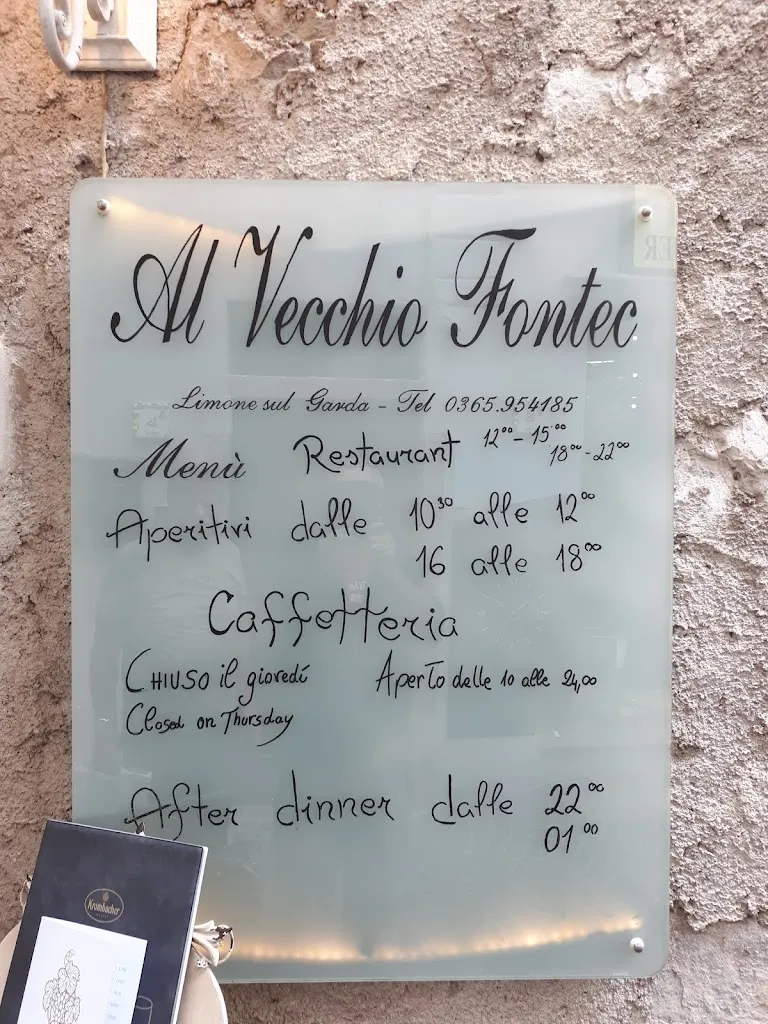 Al Vecchio Fontec
Limone sul Garda - Tel 0365.954185
Menù Restaurant 12⁰⁰ - 15⁰⁰
18⁰⁰ - 22⁰⁰
Aperitivi dalle 10³⁰ alle 12⁰⁰
16 alle 18⁰⁰
Caffetteria
CHIUSO il giovedí Aperto dalle 10 alle 24,00
Closed on Thursday
After dinner dalle 22⁰⁰
01⁰⁰
Krombacher